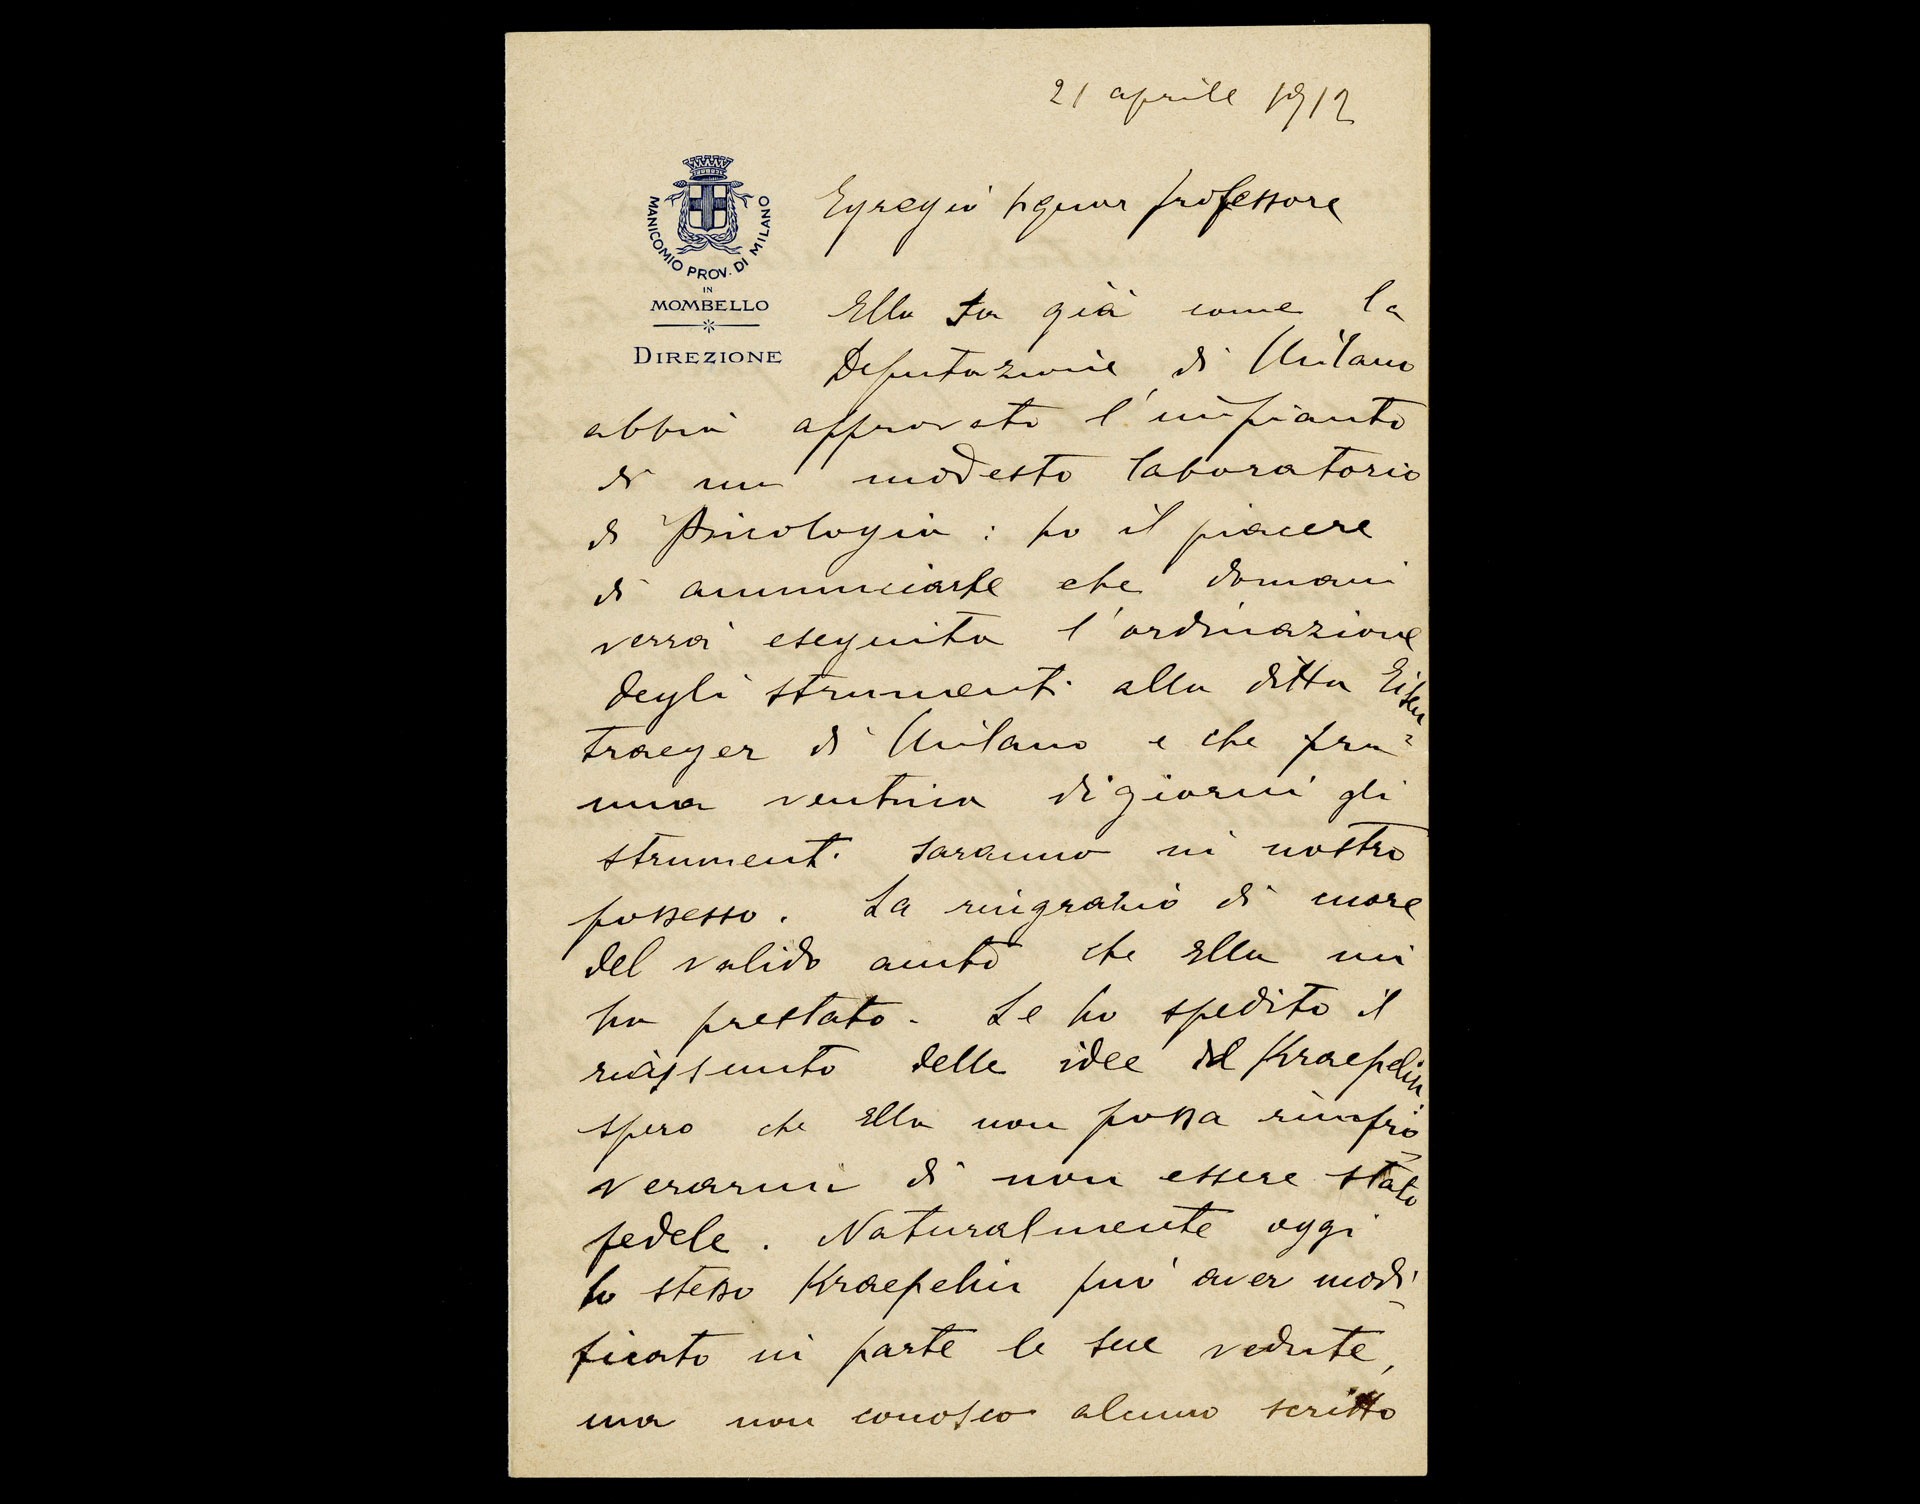 21 aprile 1912
MANICOMIO PROV. DI MILANO
IN
MOMBELLO
DIREZIONE
Egregio signor professore
Ella sa già come la
Deputazione di Milano
abbia approvato l'impianto
di un modesto laboratorio
di Psicologia : ho il piacere
di annunciarle che domani
verrà eseguita l'ordinazione
degli strumenti alla ditta Eisen
traeger di Milano e che fra
una ventina di giorni gli
strumenti saranno in nostro
possesso. La ringrazio di cuore
del valido aiuto che Ella mi
ha prestato. Le ho spedito il
riassunto delle idee del Kraepelin:
spero che Ella non possa rimpro-
verarmi di non essere stato
fedele. Naturalmente oggi
lo stesso Kraepelin può aver modi-
ficato in parte le sue vedute,
ma non conosco alcuno scritto